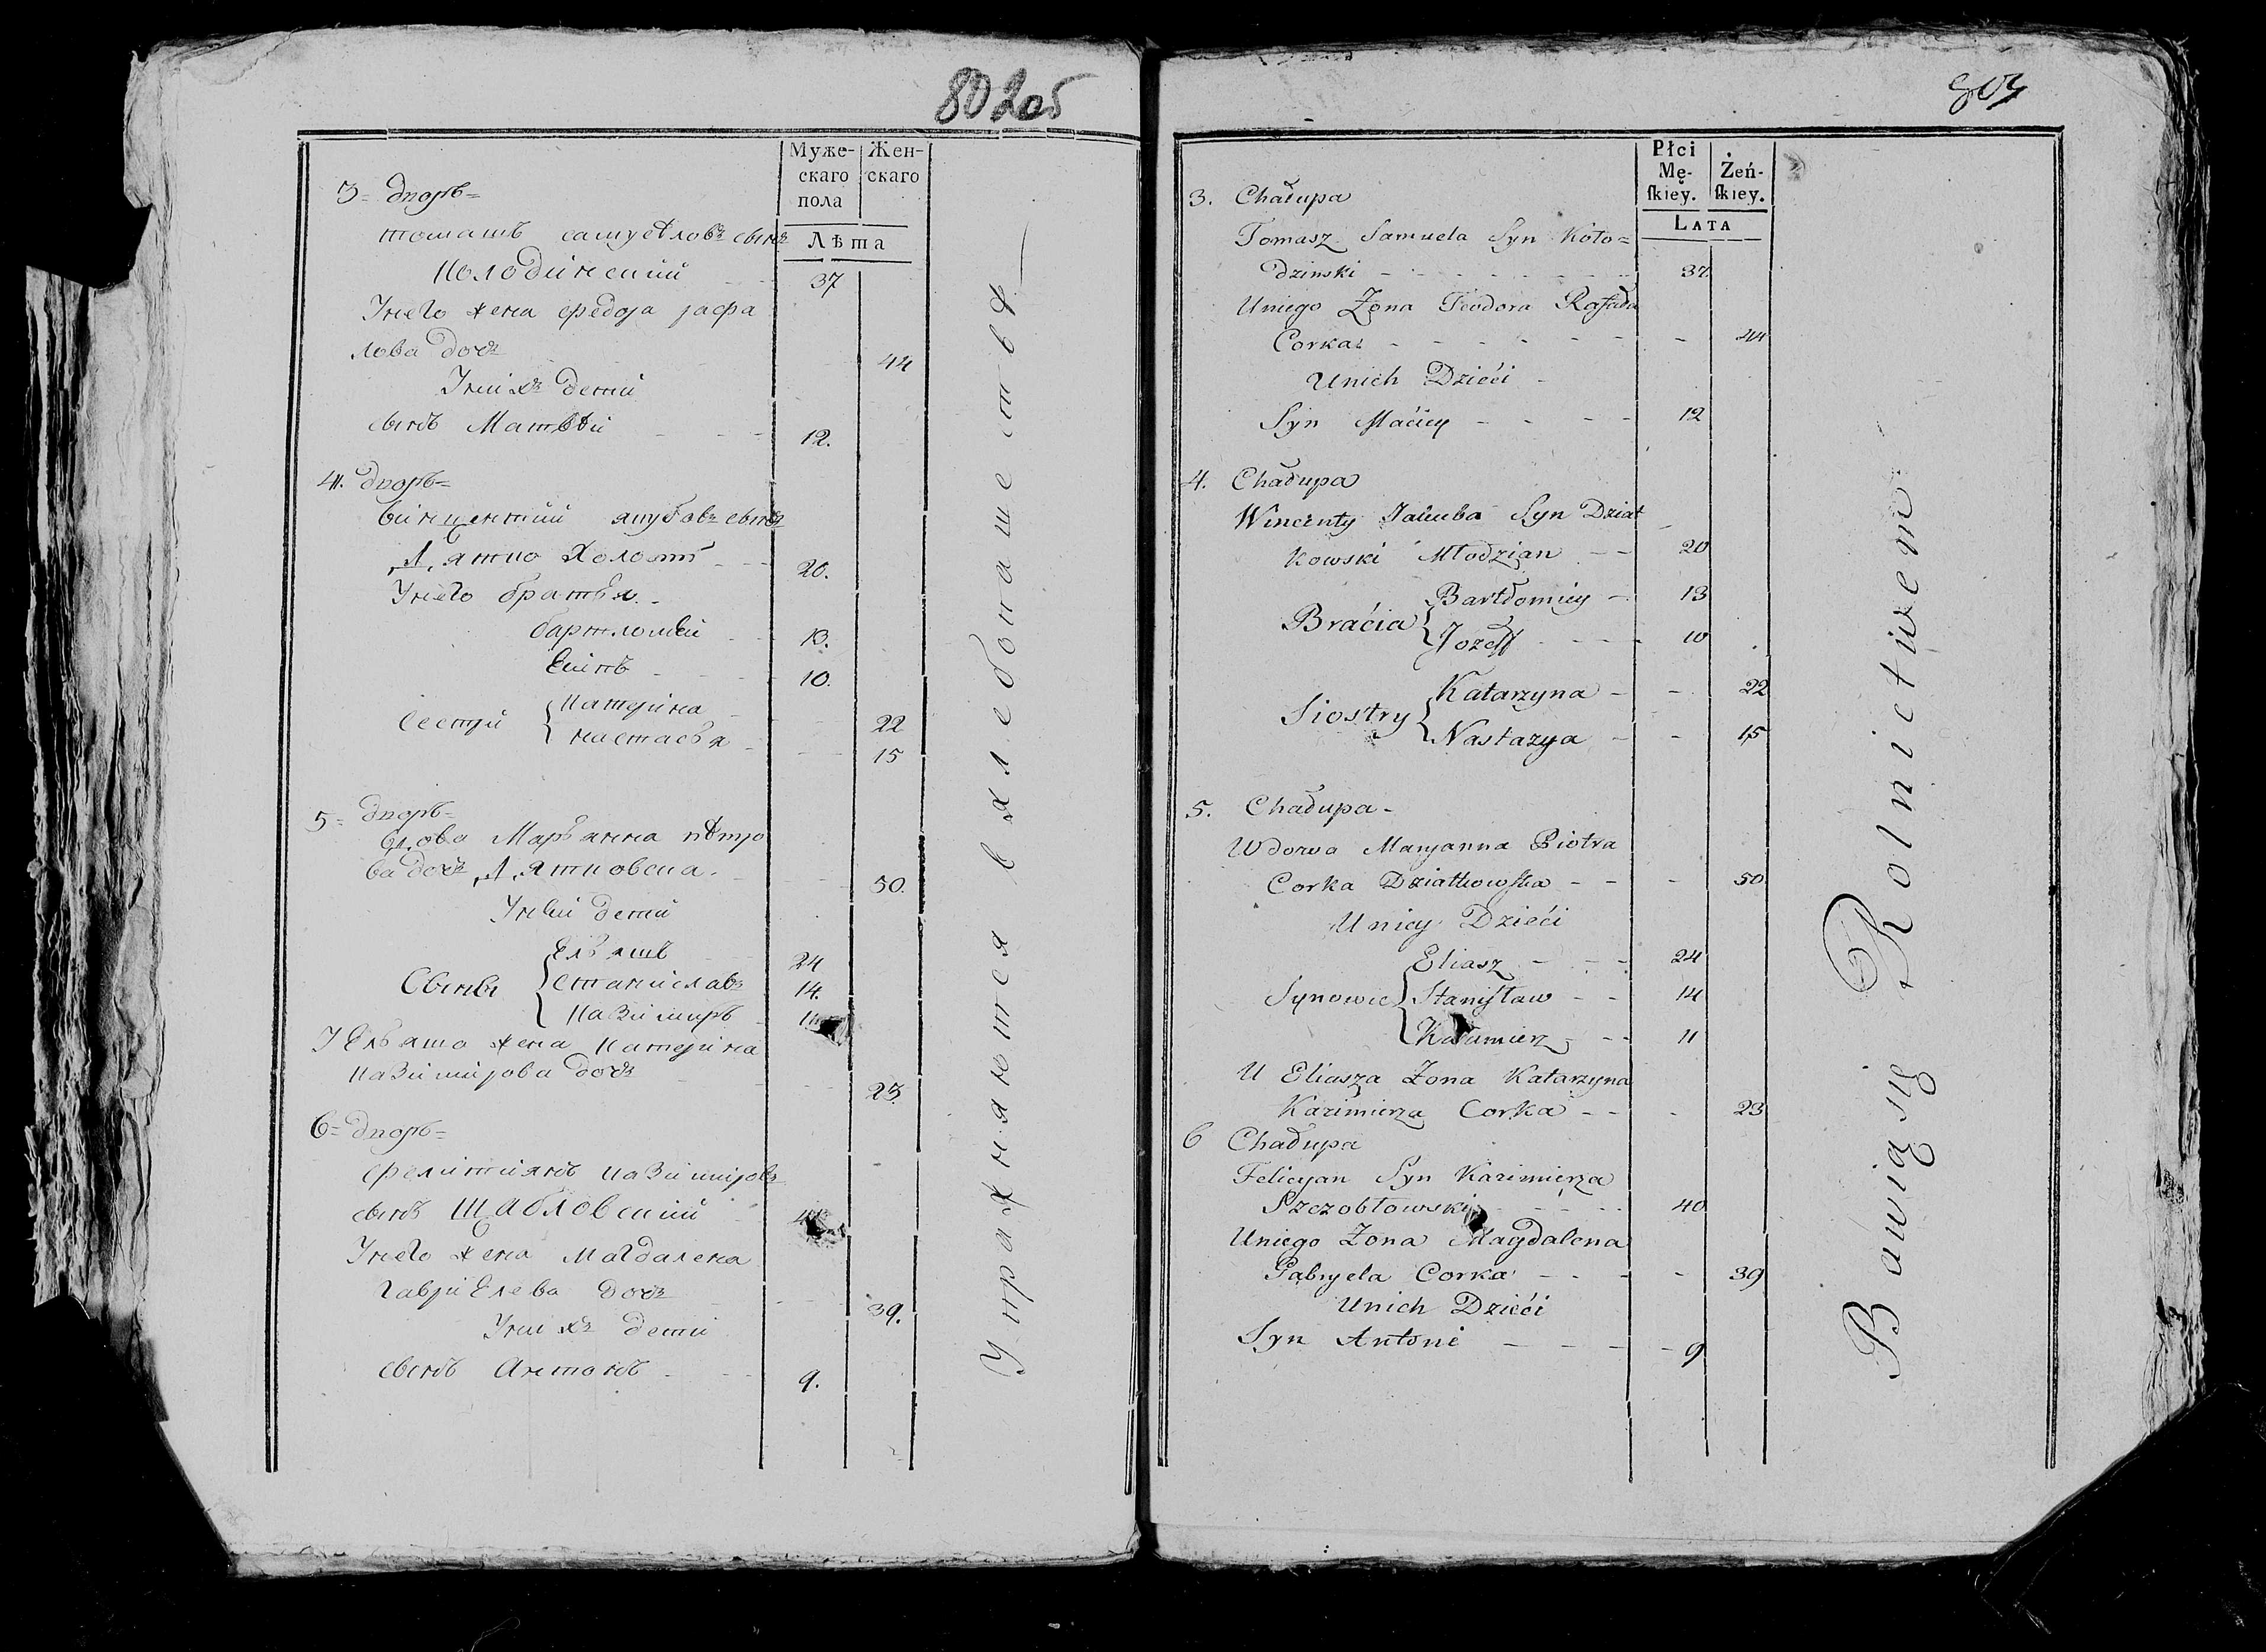 802об
Муже-
скаго
пола
Жен-
скаго
Лѣта
3= дворъ=
томашъ самуѣловъ сынъ
Колодинский 37
Унего жена федора рафа
лова дочь 44
Унихъ дети
сынъ Матвѣй 12.
4. дворъ=
винцентий якубовъ сынъ
Дятко холостъ 20.
Унего братья
бартломѣй 13.
Есипъ 10.
Сестры
катерина 22
настасья 15
5= дворъ=
вдова Марьянна пѣтро
ва дочь Дятковска 50.
Унѣй дети
Сыны
Ельяшъ 24
станиславъ 14.
казимиръ
У Ельяша жена катерина
казимирова дочь 23.
6= дворъ=
фелитиянъ казимировъ
сынъ Щабловский
Унего жена магдалена
гавриелева дочь 39.
Унихъ дети
сынъ Антонъ 9.
Упражняются в хлебопашествѣ
803
Płci
Mę-
ſkiey.
Żeń-
ſkiey.
LATA
3. Chałupa
Tomasz Samuela Syn Koło=
dzinski 37
Uniego Żona Teodora Rafała
Corka 44
Unich Dzieći
Syn Maćiey 12
4. Chałupa
Wincenty Jakuba Syn Dziat
kowski Młodzian 20
Braćia
Bartłomiey 13
Jozeff 10
Siostry
Katarzyna 22
Nastazya 15
5. Chałupa
Wdowa Maryanna Piotra
Corka Dziatkowſka 50
U niey Dzieći
Synowie
Eliasz 24
Staniſław 14
Kazimierz 11
U Eliasza Żona Katarzyna
Kazimierza Corka 23
6 Chałupa
Felicyan Syn Kazimierza
Szczobłowski 40
Uniego Żona Magdalena
Gabryela Corka 39
Unich Dzieći
Syn Antoni 9
Bawią się Rolnictwem